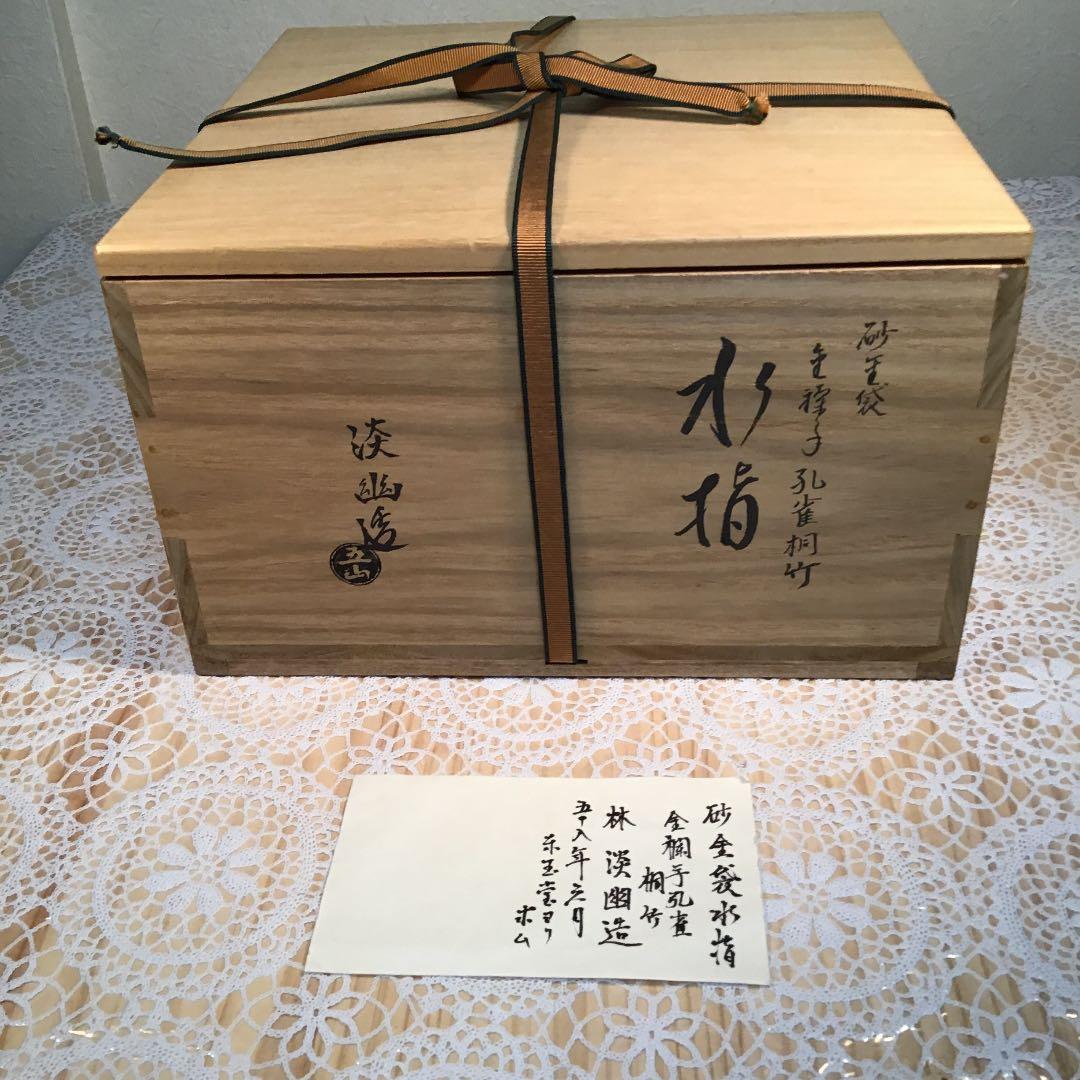 砂金袋
金襴手 孔雀桐竹
水指
淡幽造
五山
砂金袋水指
金襴手孔雀
桐竹
林 淡幽造
五十八年三月
玉堂ヨリ
求ム